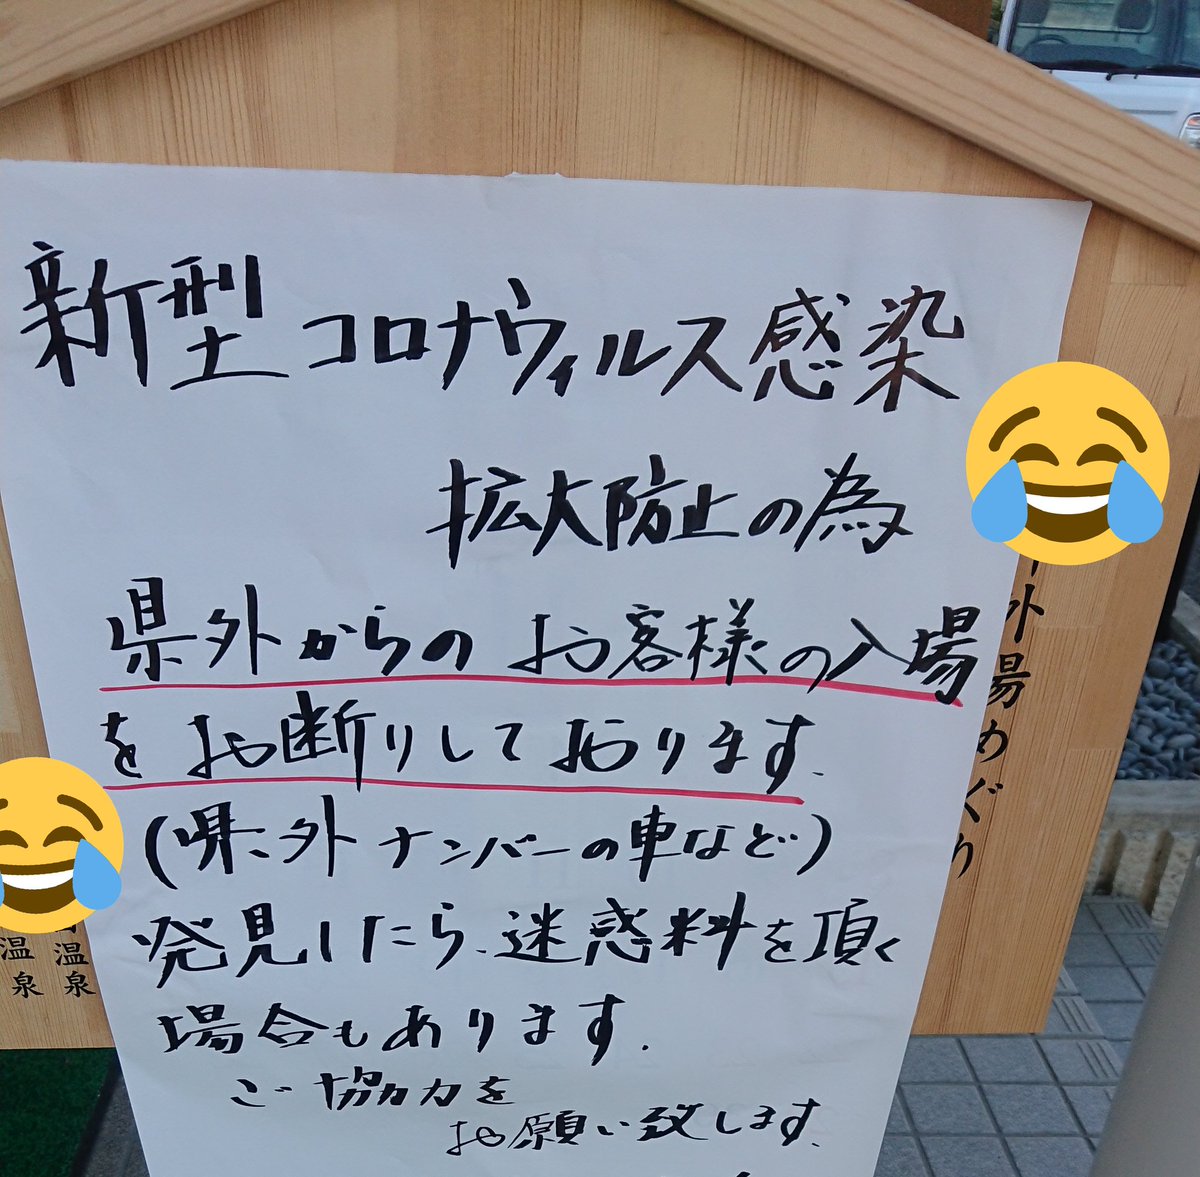 新型コロナウィルス感染
拡大防止の為
県外からのお客様の入場
をお断りしております.
(県外ナンバーの車など)
発見したら、迷惑料を頂く
場合もあります.
ご協力を
お願い致します.
外湯めぐり
温泉
温泉